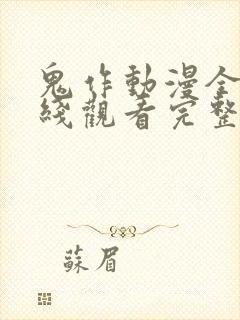 鬼作動漫全
綫觀看完整
蘇眉